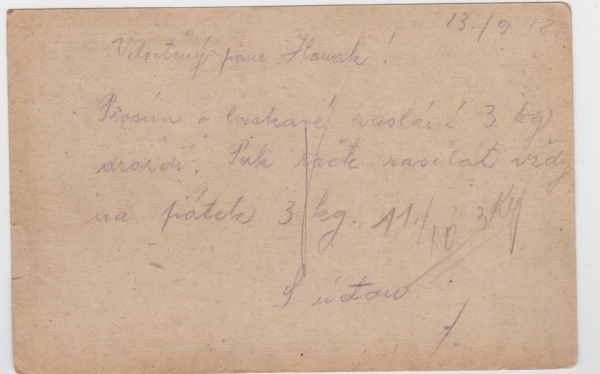 13./9 18
Velectěný pane Howak!
Prosím o laskavé zaslání 3 kg
droždí. Pak račte zasílat vždy
na pátek 3 kg. 11./10 3 Kg
S úctou